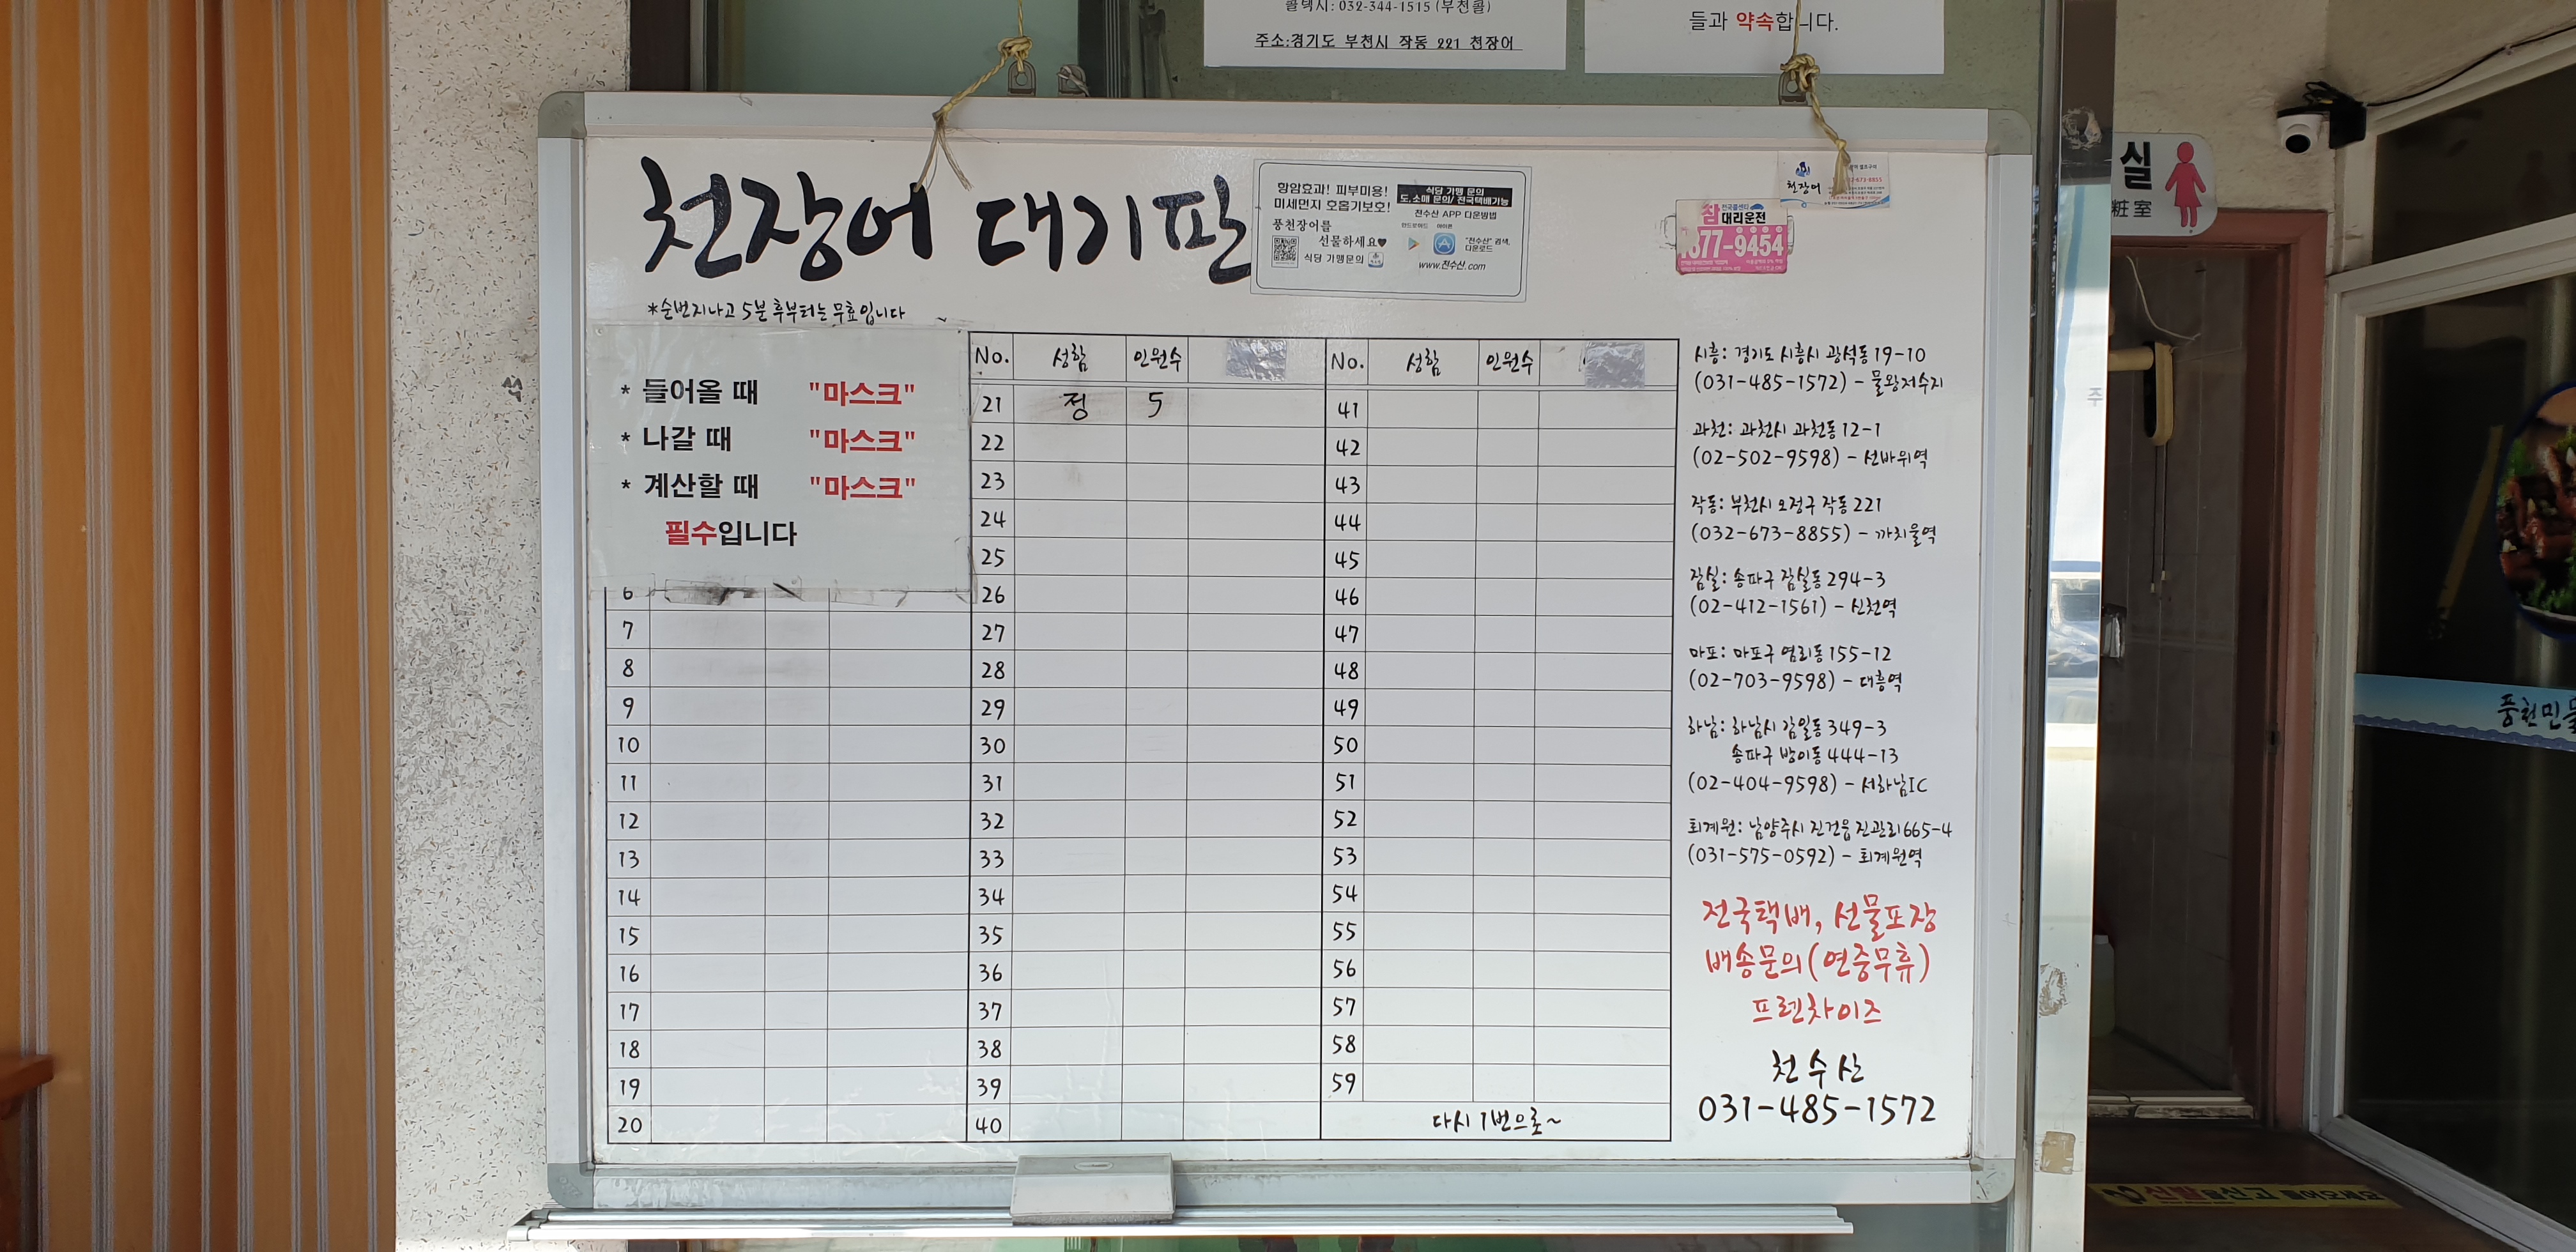 콜택시: 032-344-1515 (부천콜)
주소:경기도 부천시 작동 221 천장어
들과 약속합니다.
천장어 대기판
*순번지나고 5분 후부터는 무효입니다
항암효과! 피부미용!
미세먼지 호흡기보호!
풍천장어를
선물하세요♥
식당 가맹문의
식당 가맹 문의
도,소매 문의/ 전국택배가능
천수산 APP 다운방법
안드로이드 아이폰
"천수산" 검색,
다운로드
www.천수산.com
천장어
참 대리운전
577-9454
실
粧室
* 들어올 때 "마스크"
* 나갈 때 "마스크"
* 계산할 때 "마스크"
필수입니다
6
7
8
9
10
11
12
13
14
15
16
17
18
19
20
No. 성함 인원수
21 정 5
22
23
24
25
26
27
28
29
30
31
32
33
34
35
36
37
38
39
40
No. 성함 인원수
41
42
43
44
45
46
47
48
49
50
51
52
53
54
55
56
57
58
59
다시 1번으로~
시흥: 경기도 시흥시 광석동 19-10
(031-485-1572) - 물왕저수지
과천: 과천시 과천동 12-1
(02-502-9598) - 선바위역
작동: 부천시 오정구 작동 221
(032-673-8855) - 까치울역
잠실: 송파구 잠실동 294-3
(02-412-1561) - 신천역
마포: 마포구 염리동 155-12
(02-703-9598) - 대흥역
하남: 하남시 감일동 349-3
송파구 방이동 444-13
(02-404-9598) - 서하남IC
퇴계원: 남양주시 진건읍 진관리 665-4
(031-575-0592) - 퇴계원역
전국택배, 선물포장
배송문의(연중무휴)
프렌차이즈
천수산
031-485-1572
풍천민물
신발을신고 들어오세요